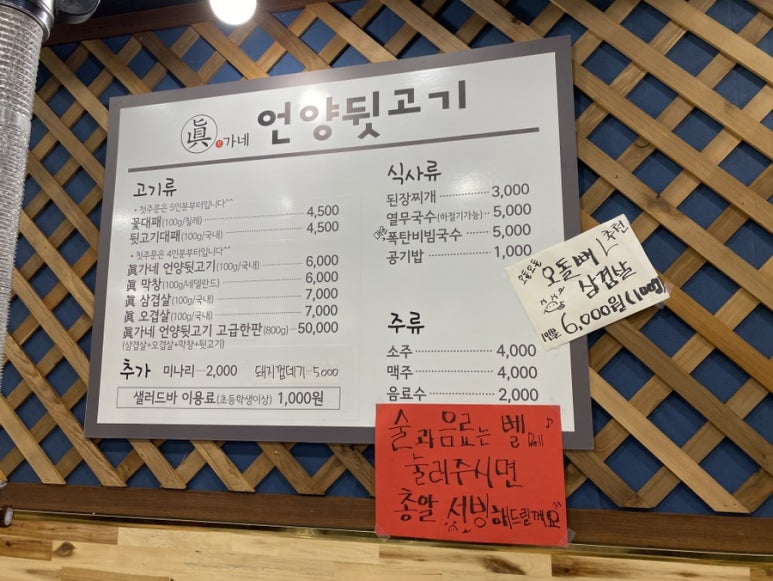 眞가네 언양뒷고기
고기류
* 첫주문은 5인분부터입니다^^
꽃대패(100g/칠레) 4,500
뒷고기대패(100g/국내) 4,500
* 첫주문은 4인분부터입니다^^
眞가네 언양뒷고기(100g/국내) 6,000
眞 막창(100g/네덜란드) 6,000
眞 삼겹살(100g/국내) 7,000
眞 오겹살(100g/국내) 7,000
眞가네 언양뒷고기 고급한판(800g) 50,000
(삼겹살+오겹살+막창+뒷고기)
추가 미나리 2,000 돼지껍데기 5,000
샐러드바 이용료(초등학생이상) 1,000원
식사류
된장찌개 3,000
열무국수(하절기가능) 5,000
폭탄비빔국수 5,000
공기밥 1,000
주류
소주 4,000
맥주 4,000
음료수 2,000
오돌오돌
오돌뼈 추천
삼겹살
술과 음료는 벨♪
Bell
눌러주시면
총알 서빙해드릴게요